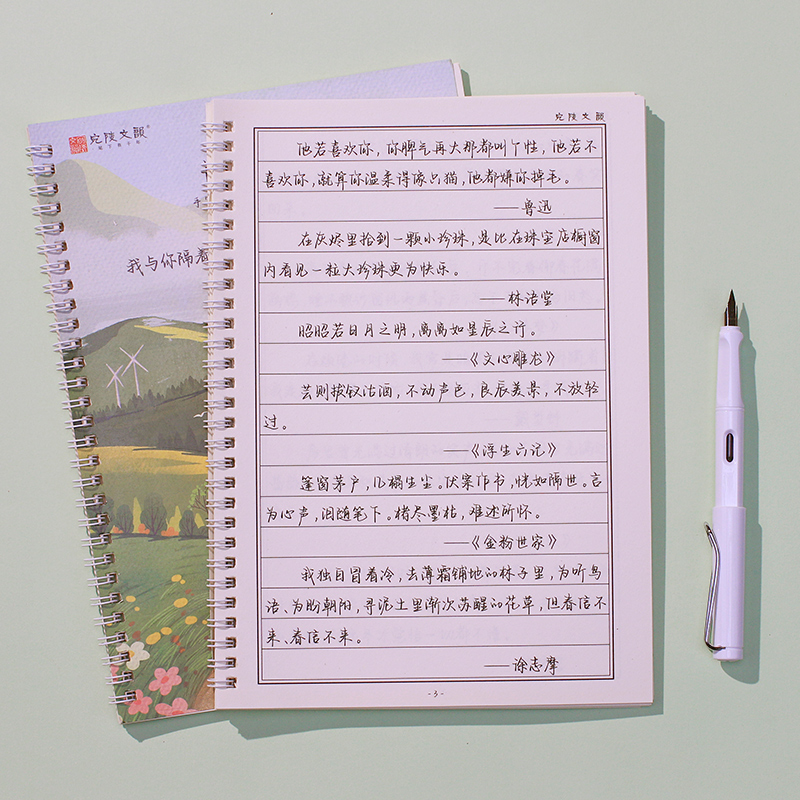 宛陵文顾
我与你隔着
手
宛陵文顾
他若喜欢你，你脾气再大那都叫个性，他若不
喜欢你，就算你温柔得像只猫，他都嫌你掉毛。
——鲁迅
在灰烬里拾到一颗小珍珠，是比在珠宝店橱窗
内看见一粒大珍珠更为快乐。
——林语堂
昭昭若日月之明，离离如星辰之行。
——《文心雕龙》
芸则拔钗沽酒，不动声色，良辰美景，不放轻
过。
——《浮生六记》
篷窗茅户，几榻生尘。伏案作书，恍如隔世。言
为心声，泪随笔下。楮尽墨枯，难述所怀。
——《金粉世家》
我独自冒着冷，去薄霜铺地的林子里，为听鸟
语、为盼朝阳，寻泥土里渐次苏醒的花草，但春信不
来、春信不来。
——徐志摩
-3-